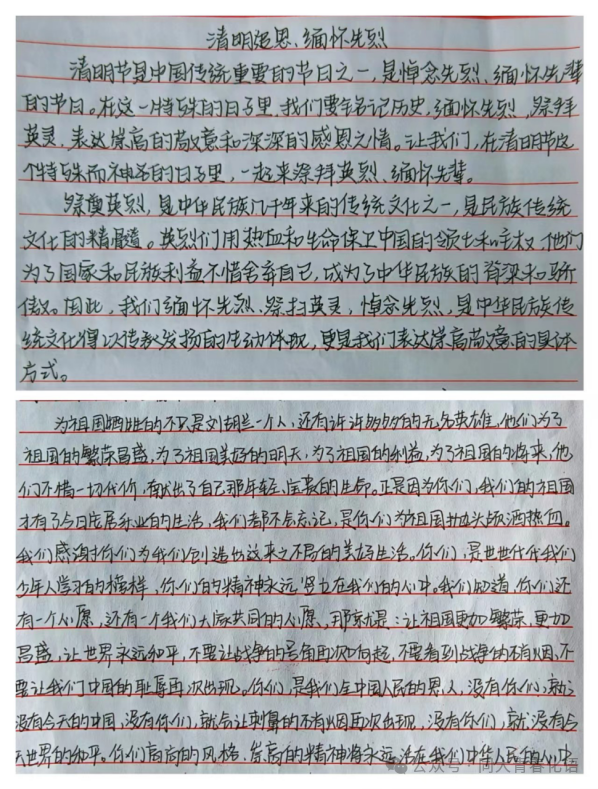 清明追思、缅怀先烈
清明节是中国传统重要的节日之一,是悼念先烈、缅怀先辈
的节日。在这一特殊的日子里,我们要铭记历史,缅怀先烈,祭拜
英灵,表达崇高的敬意和深深的感恩之情。让我们,在清明节这
个特殊而神圣的日子里,一起来祭拜英烈、缅怀先辈。
祭奠英烈,是中华民族几千年来的传统文化之一,是民族传统
文化的精髓。英烈们用热血和生命保卫中国的领土和主权,他们
为了国家和民族利益不惜舍弃自己,成为了中华民族的脊梁和骄
傲。因此,我们缅怀先烈、祭扫英灵,悼念先烈,是中华民族传
统文化得以传承发扬的生动体现,更是我们表达崇高尚意的具体
方式。
为祖国牺牲的不只是刘胡兰一个人,还有许许多多的无名英雄,他们为了
祖国的繁荣昌盛,为了祖国美好的明天,为了祖国的利益,为了祖国的将来,他
们不惜一切代价,献出了自己那年轻、宝贵的生命。正是因为你们,我们的祖国
才有了今日成居乐业的生活,我们都不会忘记,是你们为祖国抛头颅洒热血。
我们感谢你们为我们创造出这来之不易的美好生活。你们,是世世代代我们
少年人学习的榜样,你们的精神永远竖立在我们的心中。我们知道你们还
有一个心愿,还有一个我们大家共同的心愿,那就是:让祖国更加繁荣,更加
昌盛,让世界永远和平,不要让战争的号角再次响起,不要看到战争的硝烟,不
要让我们中国的耻辱再次出现。你们,是我们全中国人民的恩人,没有你们,就
没有今天的中国,没有你们,就会让刺鼻的硝烟再次出现,没有你们,就没有今
天世界的和平。你们高尚的风格、崇高的精神将永远活在我们中华人民的心中
公众号